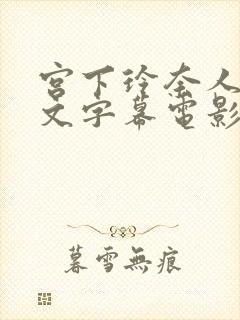 宫下玲奈人
文字幕電影
暮雪無痕